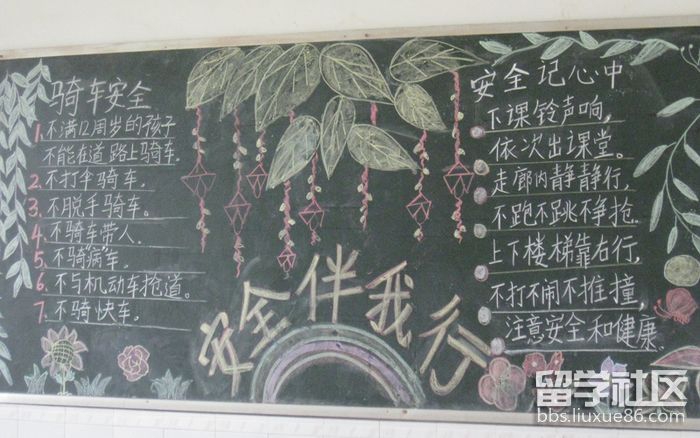 骑车安全
1. 不满12周岁的孩子
不能在道路上骑车.
2. 不打伞骑车.
3. 不脱手骑车。
4. 不骑车带人.
5. 不骑病车.
6. 不与机动车抢道。
7. 不骑快车.
安全伴我行
安全记心中
下课铃声响,
依次出课堂。
走廊内静静行,
不跑不跳不争抢.
上下楼梯靠右行,
不打不闹不推撞,
注意安全和健康.
留学社区
bbs.liuxue86.com